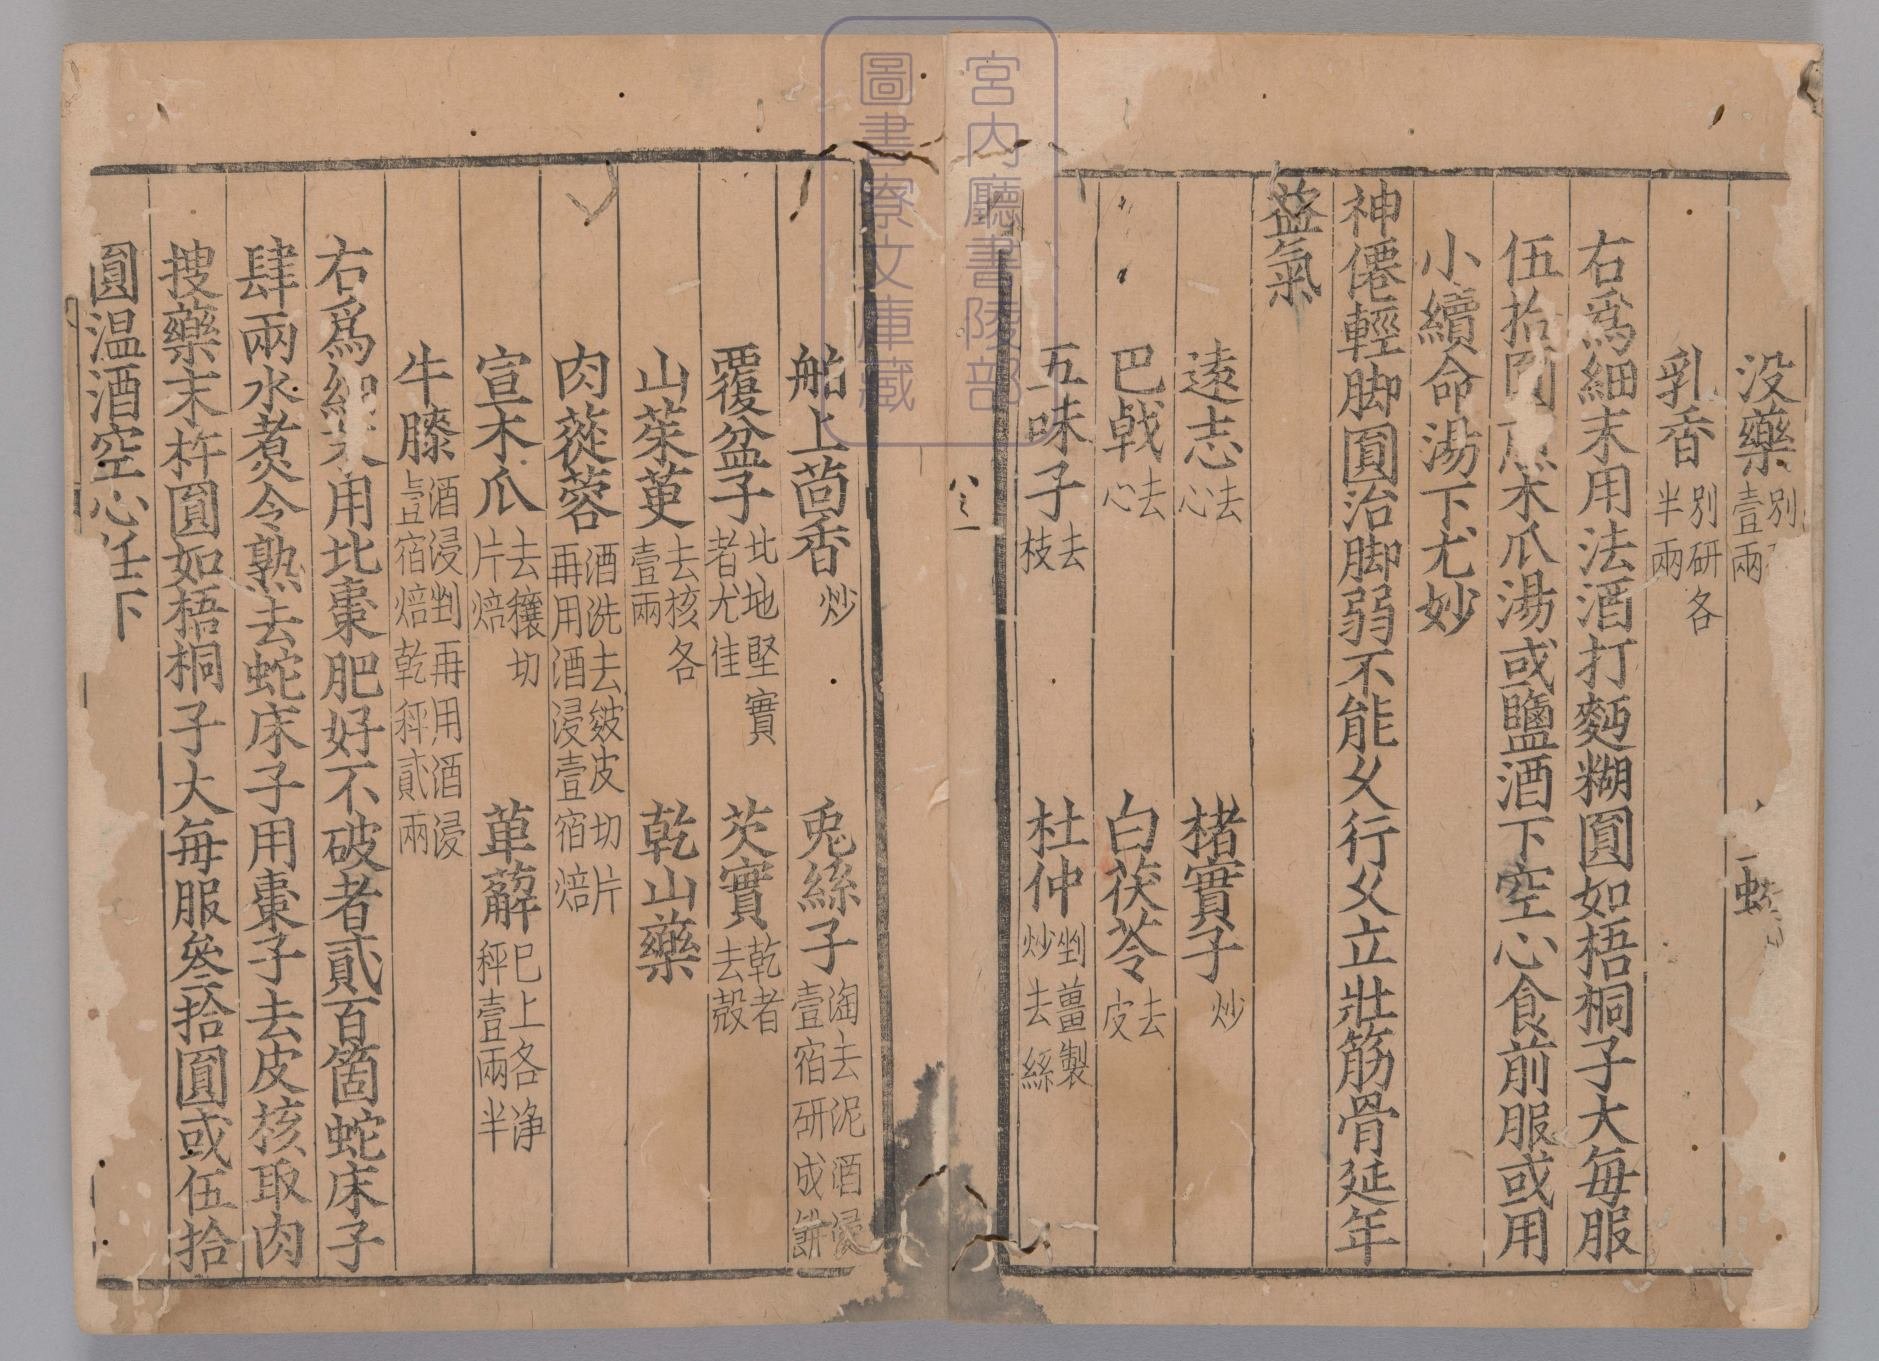 没藥別壹兩
乳香別研各半兩
右爲細末用法酒打麪糊圓如梧桐子大每服
伍拾木瓜湯或鹽酒下空心食前服或用
小續命湯下尤妙
神僊輕脚圓治脚弱不能久行久立壯筋骨延年
益氣
遠志去心 楮實子炒
巴戟去心 白茯苓去皮
五味子去枝 杜仲剉薑製炒去絲
船上茴香炒 兎絲子淘去泥酒浸壹宿研成餅
覆盆子北地堅實者尤佳 芡實乾者去殻
山茱萸去核各壹兩 乾山藥
肉蓯蓉酒洗去皴皮切片再用酒浸壹宿焙
宣木瓜去穰切片焙 萆薢已上各浄秤壹兩半
牛膝酒浸剉再用酒浸壹宿焙乾秤貳兩
右爲細末用北棗肥好不破者貳百箇蛇床子
肆兩水煮令熟去蛇床子用棗子去皮核取肉
搜藥末杵圓如梧桐子大每服叄拾圓或伍拾
圓温酒空心任下
宮内廳書陵部
圖書寮文庫藏